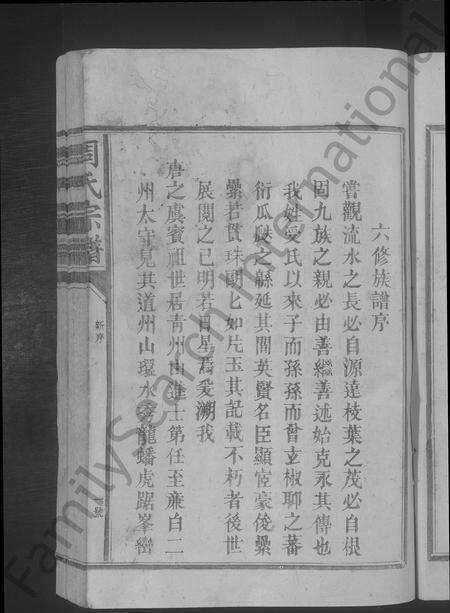 六修族譜序
嘗觀流水之長必自源達枝葉之茂必自根
固九族之親必由善繼善述始克永其傳也
我姓受氏以來子而孫孫而曾玄椒聊之蕃
衍瓜瓞之緜延其間英賢名臣顯宦豪俊纍
纍若貫珠翩匕如片玉其記載不朽者後世
展閱之已明若日星焉爰溯我
唐之虞賓祖世居青州由進士第任至廉白二
州太守見其道州山環水秀龍蟠虎踞峯巒
周氏宗譜
新序
壹號
FamilySearch International